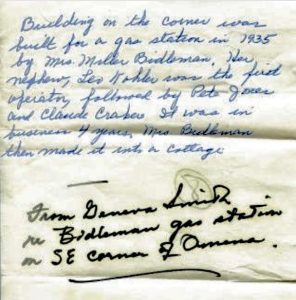 Building on the corner was
built for a gas station in 1935
by Mrs. Miller Bidleman. Her
nephew, Leo Nohler was the first
operator, followed by Pete Jones
and Claude Craker. It was in
business 4 years, Mrs Bidleman
then made it into a cottage.
From Geneva Smith
re Bidleman gas station
on SE corner of Omena.